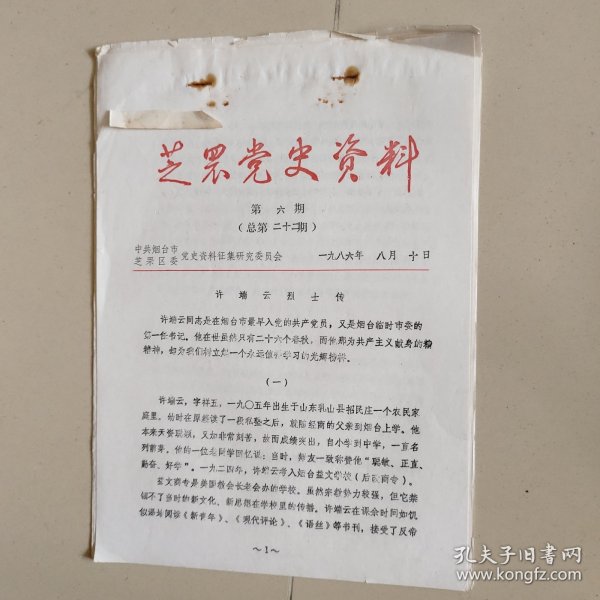 芝罘党史资料
第六期
（总第二十二期）
中共烟台市
芝罘区委 党史资料征集研究委员会 一九八六年 八月 十日
许端云烈士传
许端云同志是在烟台市最早入党的共产党员，又是烟台临时市委的
第一任书记。他在世虽然只有二十六个春秋，而他那为共产主义献身的
精神，却为我们树立了一个永远值得学习的光辉榜样。
（一）
许端云，字祥五，一九〇五年出生于山东乳山县招民庄一个农民家
庭里。幼时在原籍读了一段私塾之后，就随经商的父亲到烟台上学。他
本来天资聪颖，又加非常刻苦，故而成绩突出，自小学到中学，一直名
列前茅。他的一位老同学回忆说：当时，师友一致称赞他“聪敏、正直、
勤奋、好学”。一九二四年，许端云考入烟台益文学校（后改商专）。
益文商专是美国教会长老会办的学校。虽然宗教势力较强，但它禁
锢不了当时的新文化、新思想在学校里的传播。许端云在课余时间如饥
似渴地阅读《新青年》、《现代评论》、《语丝》等书刊，接受了反帝
～1～
孔夫子旧书网
www.kongfz.com